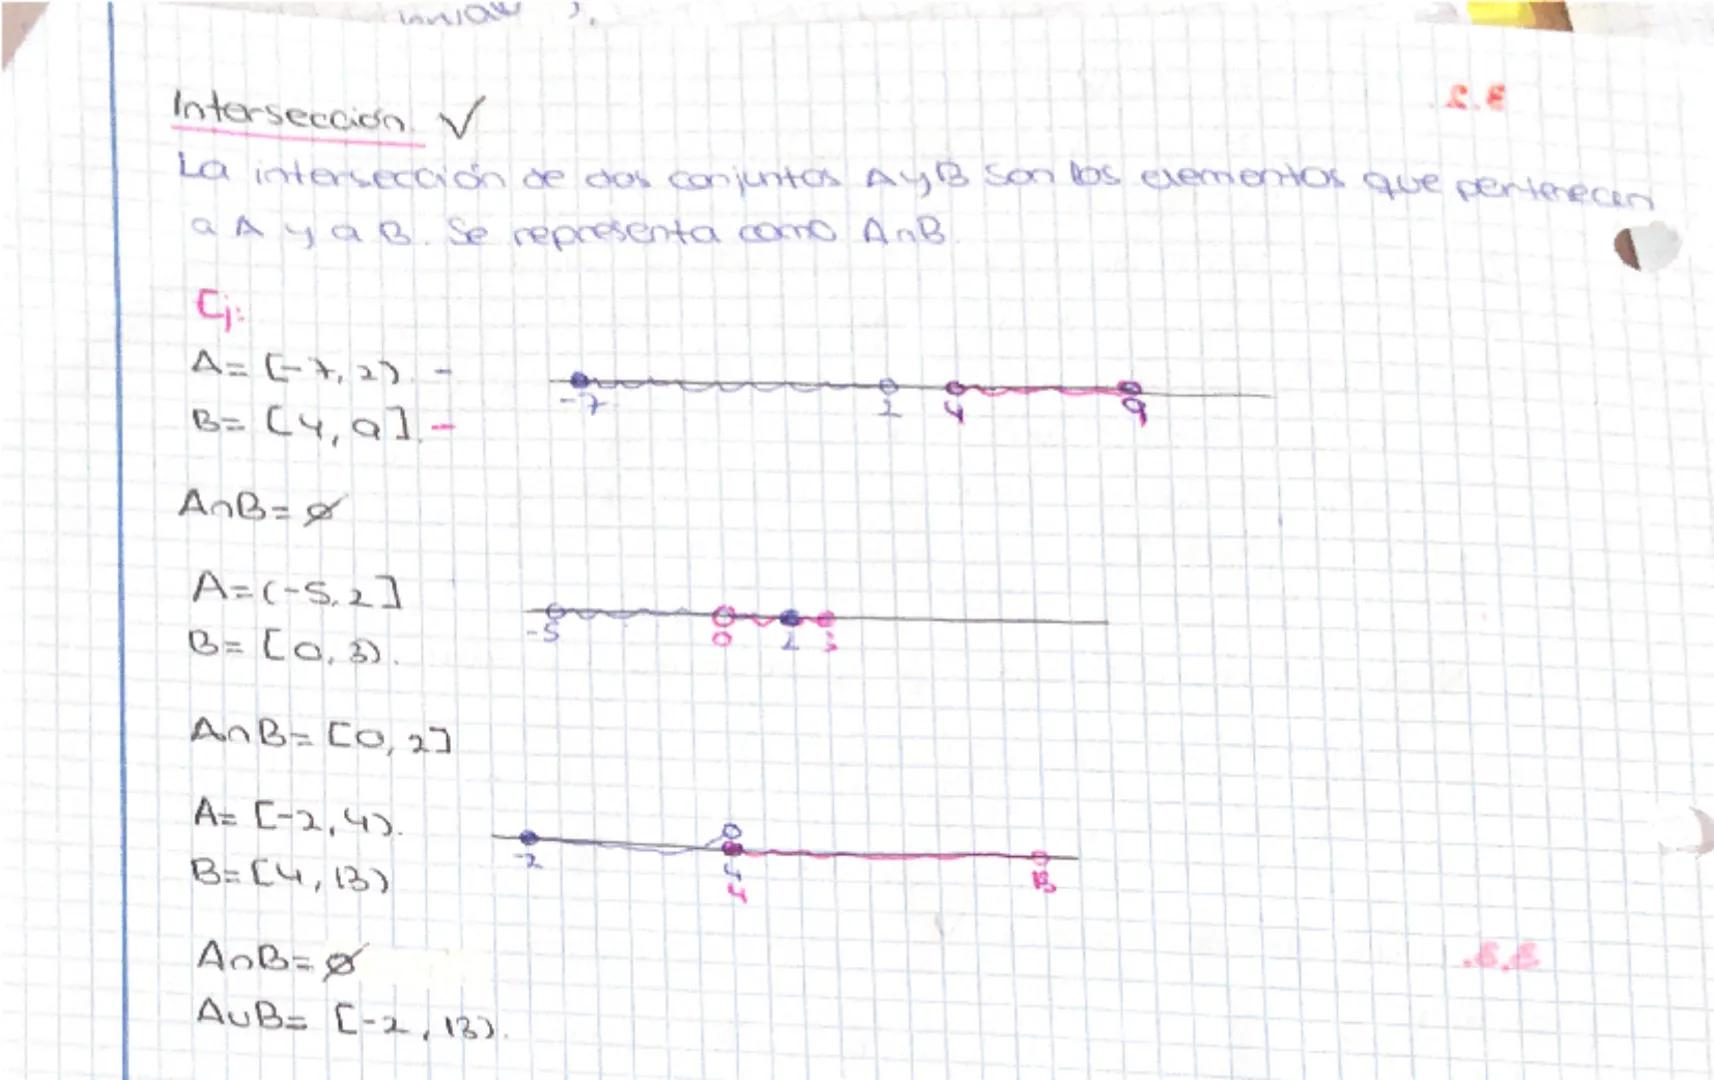 Intersección ✓
La intersección de dos conjuntos A y B son los elementos que pertenecen
a A y a B. Se representa como A∩B.
Ej:
A= [-7, 2). -
B= [4, 9]. -
-7 2 4 9
A∩B= ∅
A= (-5, 2]
B= [0, 3).
-5 0 2 3
A∩B= [0, 2]
A= [-2, 4).
B= [4, 13)
-2 4 13
4
A∩B= ∅
A∪B= [-2, 13).